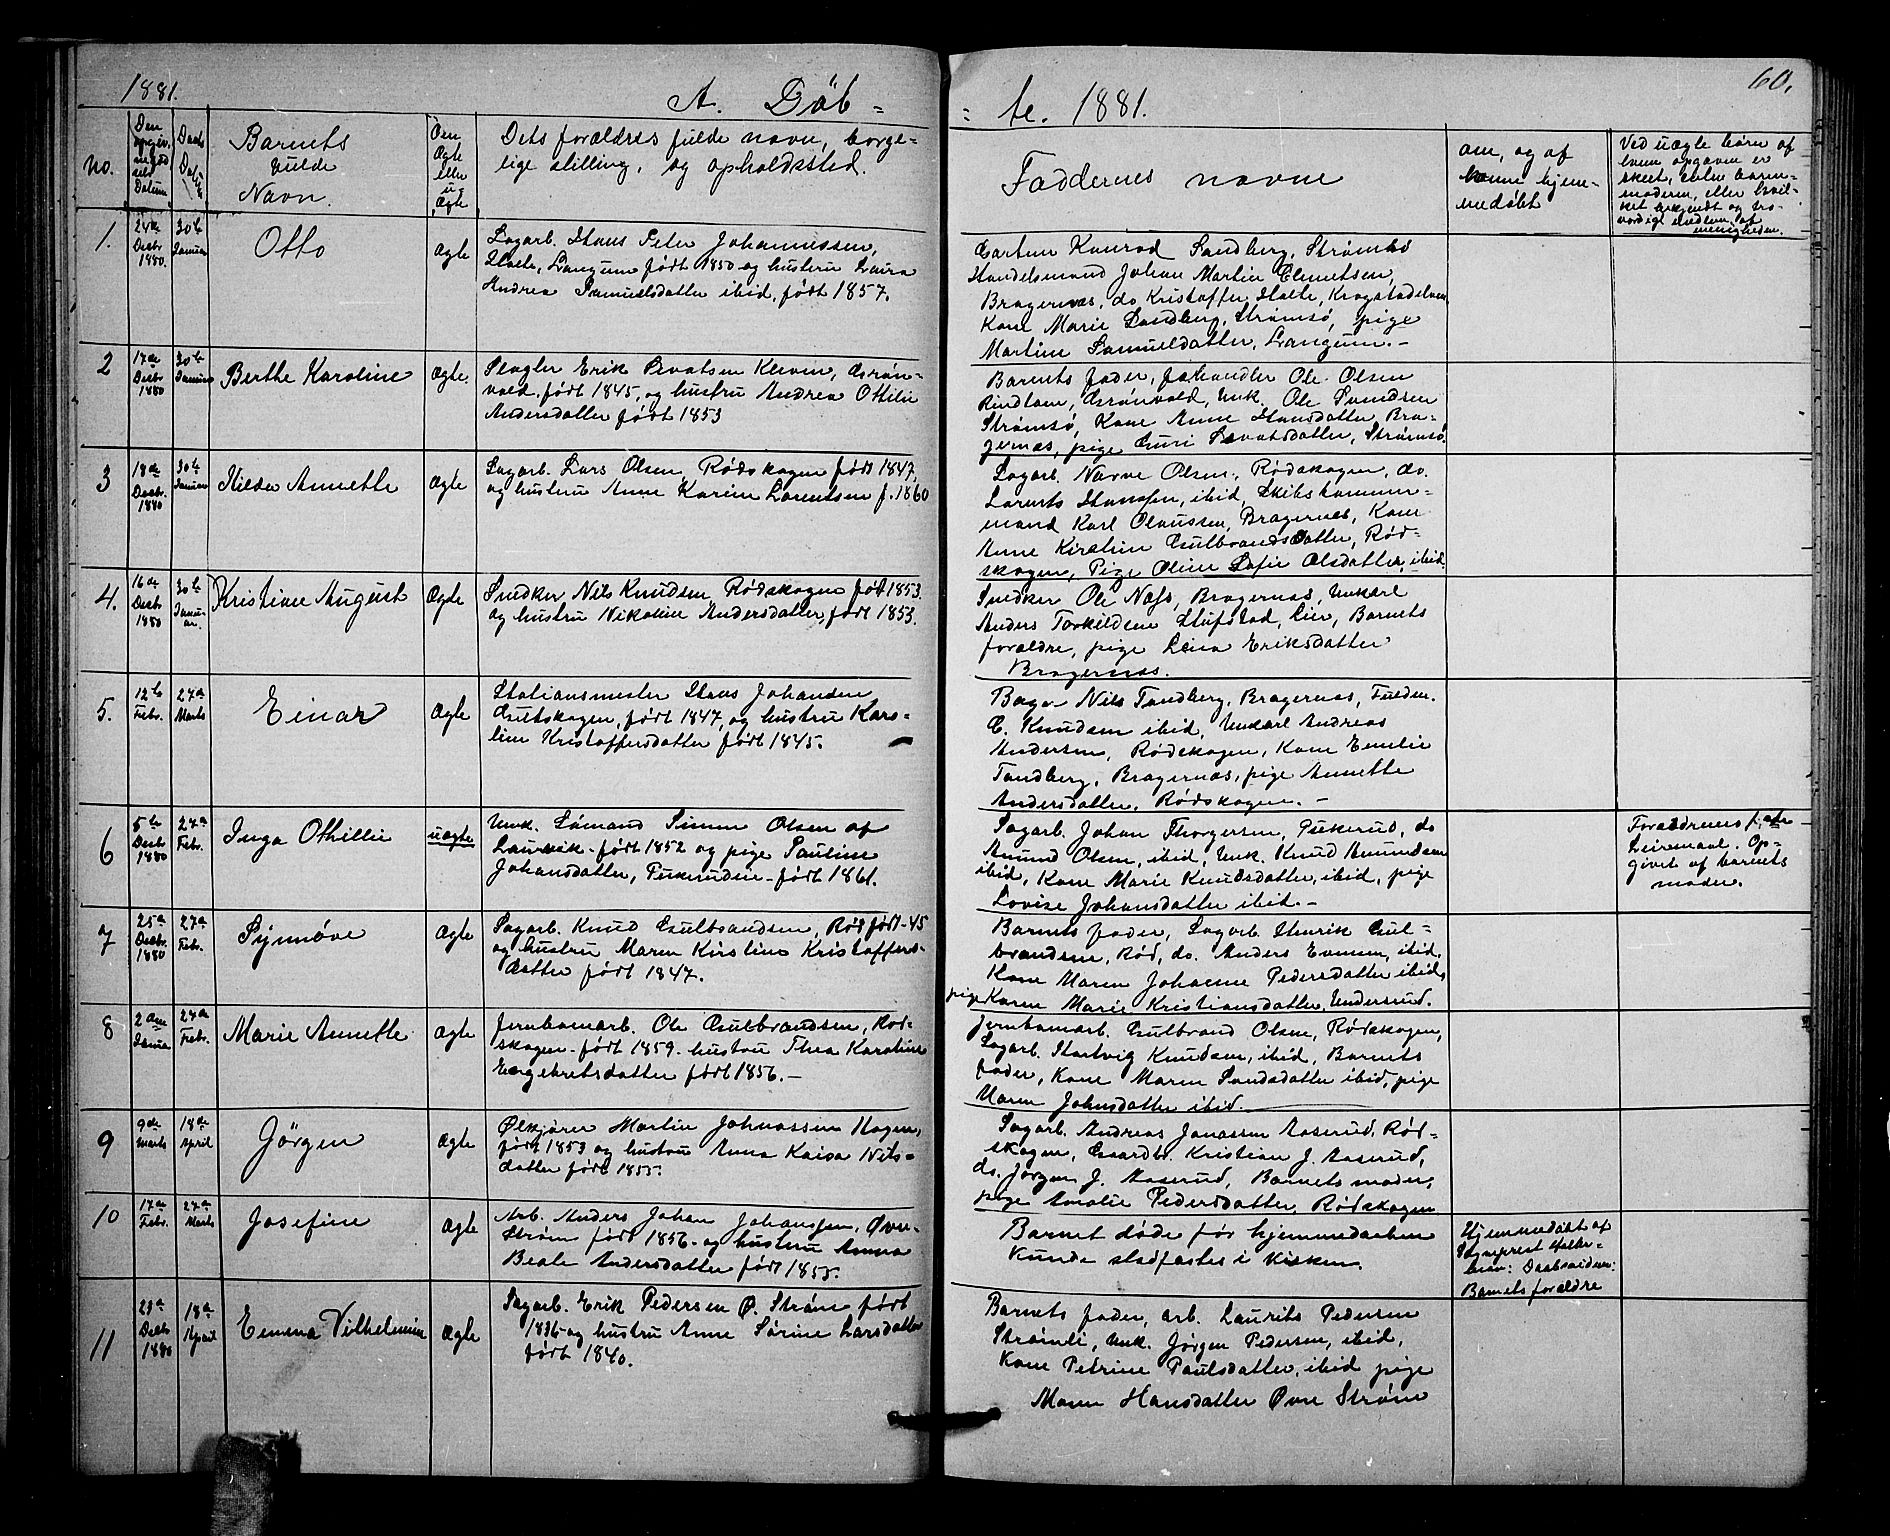 1881.
A. Döb-
No.
Den opgiv. ne fød sels Datum
Daabs Datum
Barnets
fulde
Navn.
Om Ægte eller u- Ægte
Dets forældres fulde navn, borge-
lige stilling, og opholdssted.
1.
24de Decbr. 1880.
30te Januar
Otto
Ægte
Sagarb. Hans Peter Johannessen,
født 1850 og hustru Laura
Andrea Samuelsdatter ibid, født 1857.
2
17de Decbr 1880
30te Januar
Berthe Karoline
Ægte.
Slagter Erik
født 1845, og hustru Andrea Othilie
Andersdatter født 1853
3
18de Decbr. 1880
30te Januar
Hilda Annette
Ægte
Sagarb. Lars Olsen, Rødskogen født 1847,
og hustru Anne Karine Lorentsen f. 1860
4.
16de Decbr 1880
30te Januar.
Kristian August
Ægte
Snedker Nils Knudsen Rødskogen født 1853.
og hustru Nikoline Andersdatter, født 1853.
5.
12te Febr.
27de Marts
Einar
Ægte
Stationsmester Hans Johansen
Gutskogen, født 1847, og hustru Karo-
line Kristoffersdatter født 1845.
6
5te Decbr 1880
27de Febr.
Inga Othillie
uægte
Unk. Sømand Simen Olsen af
Laurvik - født 1852 og pige Pauline
Johansdatter, Pukerudeie - født 1861.
7
25de Decbr. 1880
27de Febr.
Synnøve
Ægte
Sagarb. Knud Gulbrandsen, Rød født - 45
og hustru Maren Kirstine Kristoffers-
datter født 1847.
8
2den Janua
27de Febr.
Marie Annette
Ægte
Jernbanearb. Ole Gulbrandsen, Rød-
skogen - født 1859. hustru Thea Karoline
Engebretsdatter født 1856. -
9
9de Marts
18de April
Jörgen
Ægte
Martin Johnassen Hagen,
født 1853 og hustru Anna Kaisa Nils-
datter født 1855.
10
17de Febr.
27de Marts
Josefine
Ægte
Arb. Anders Johan Johanssen, Øvre-
Strøm født 1856 - og hustru Anna
Beate Andersdatter født 1855.
11
23de Decbr 1880
18de April
Emma Vilhelmine
Ægte
Sagarb. Erik Pedersen Ø. Strøm født
1836 og hustru Anne Sørine Larsdatter
født 1840.
- te. 1881.
60.
Faddernes navne
om, og af
hvem hjem-
medøbt
Ved uægte børn af
hvem opgaven er
skeet, enten barne-
moderen, eller hvil-
ket bekjendt og tro-
værdigt medlem af
menigheden.
Konrad Sandberg, Strømsø
Handelsmand Johan Martin Clemetsen,
Bragernæs, do Kristoffer Holte, Krogstadelven
Kone Marie Sandberg, Strømsø, pige
Martine Samuelsdatter, Langum. -
Barnets fader, Ole Olsen
Unk. Ole Svendsen
Strømsø, Kone Anne Hansdatter Bra-
gernæs, pige Guri Strømsø.
Sagarb. Olsen, Rødskogen, do.
Lorents Hanssen, ibid, Skibstømmer-
mand Karl Olaussen, Bragernæs, Kone
Anne Kirstine Gulbrandsdatter, Rød-
skogen, Pige Oline Sofie Olsdatter, ibid.
Snedker Ole Næss, Bragernæs, Unkarl
Anders Torkildsen Lier, Barnets
forældre, pige Lena Eriksdatter
Bragernæs.
Bager Nils Tandberg, Bragernæs,
C. Knudsen ibid, Unkarl Andreas
Andersen, Rødskogen, Kone Emelie
Tandberg, Bragernæs, pige Annette
Andersdatter, Rødskogen. -
Sagarb. Johan Thorgersen, Pukerud, do
Amund Olsen, ibid, Unk. Knud Amundsen
ibid, Kone Marie Knudsdatter, ibid, pige
Lovise Johansdatter ibid. -
Forældrenes f.
Leiermaal. Op-
givet af barnets
moder.
Barnets fader, Sagarb. Henrik Gul-
brandsen, Rød, do. Anders Evensen, ibid.
Kone Maren Johanne Pedersdatter ibid,
pige Karen Marie Kristiansdatter, Underud.
Jernbanearb. Gulbrand Olsen, Rødskogen,
Sagarb. Hartvig Knudsen, ibid, Barnets
fader, Kone Maren ibid, pige
Maren Johnsdatter ibid.
Sagarb. Andreas Jonassen Aaserud, Rød-
skogen, Gaardbr. Kristian J. Aaserud,
do. Jørgen J. Aaserud, Barnets moder,
pige Amalie Pedersdatter, Rødskogen
Barnet døde før hjemmedaaben
kunde stadfæstes i Kirken.
Hjemmedøbt af
Sogneprest
Daabsvidner:
Barnets forældre
Barnets fader, arb. Laurits Pedersen
Strømli, Unk. Jørgen Pedersen, ibid,
Kone Petrine Paulsdatter, ibid pige
Maren Hansdatter Øvre Strøm